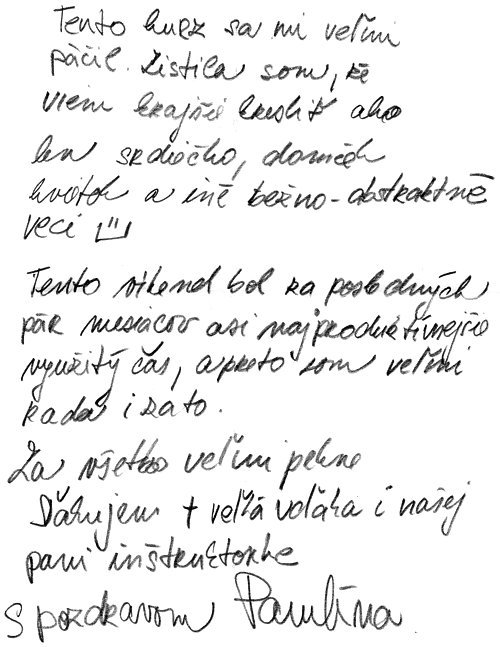 Tento kurz sa mi veľmi
páčil. Zistila som, že
viem krajšie kresliť ako
len srdiečko, domček
kvietok a iné bežno-abstraktné
veci
Tento víkend bol za posledných
pár mesiacov asi najproduktívnejšie
využitý čas, a preto som veľmi
rada i za to.
Za všetko veľmi pekne
Ďakujem + veľká vďaka i našej
pani inštruktorke
S pozdravom Paulína